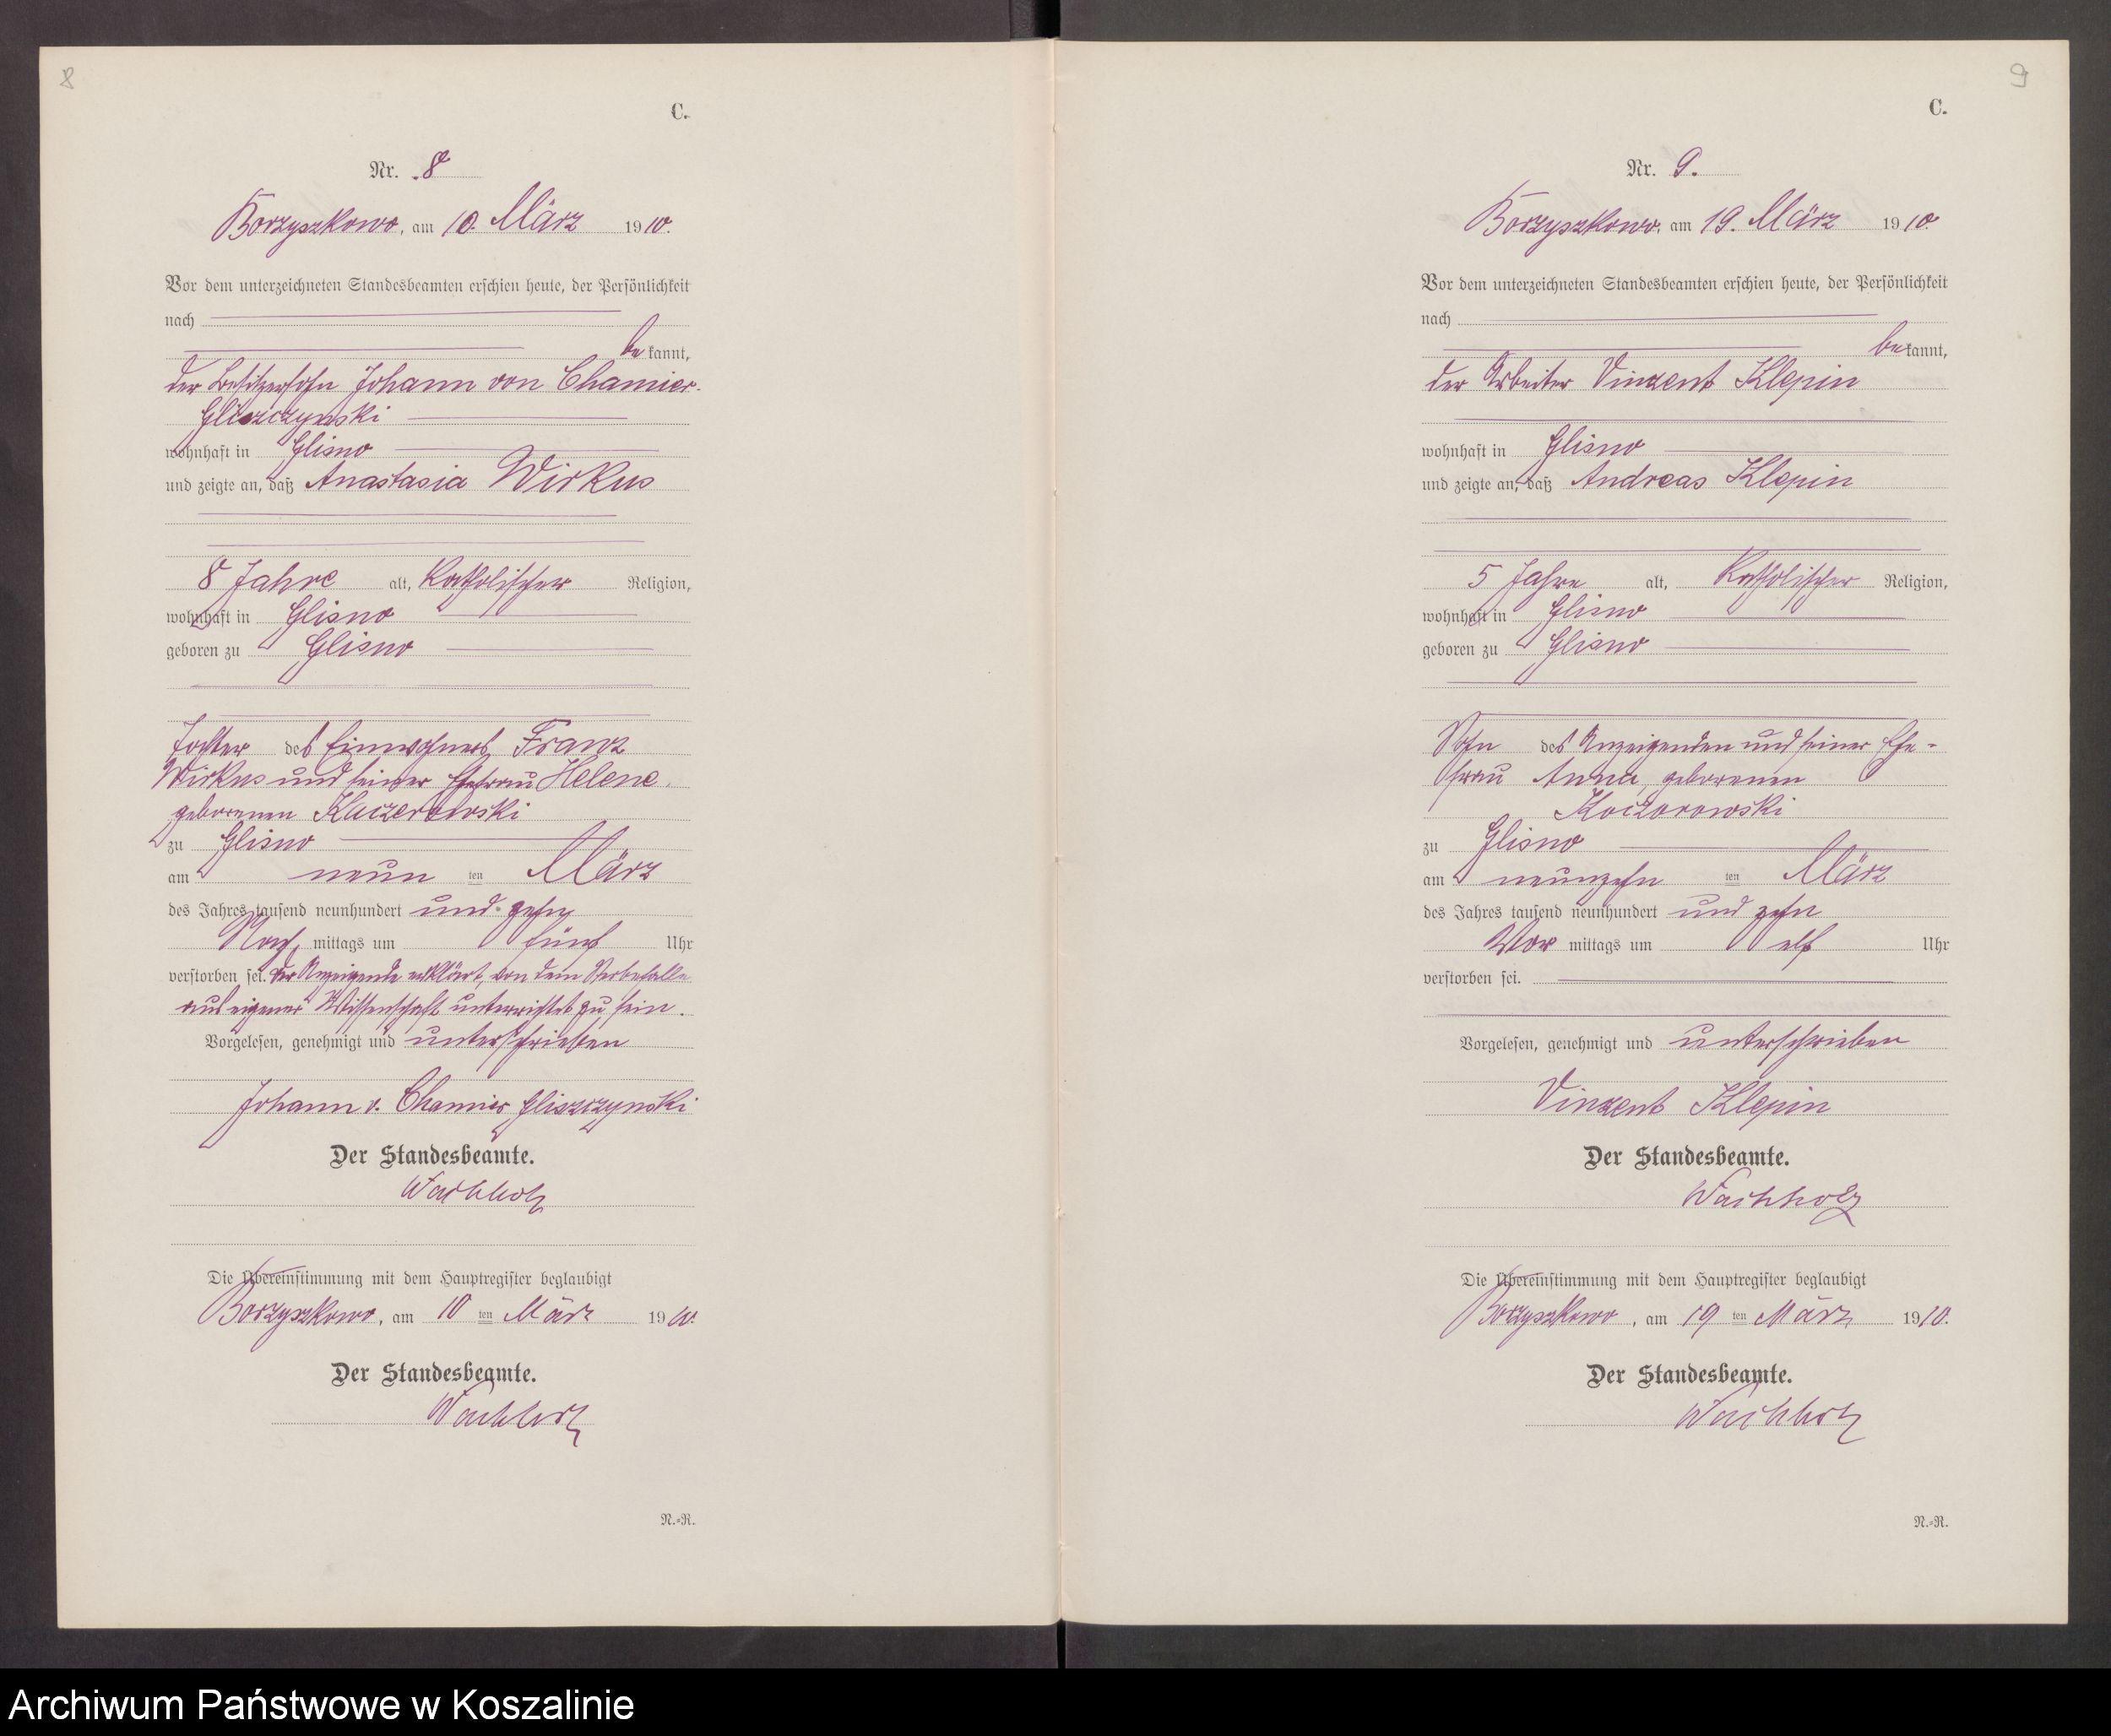 8
C.
Nr. 8
Borzyszkowo, am 10. März 1910.
Vor dem unterzeichneten Standesbeamten erschien heute, der Persönlichkeit
nach
bekannt,
der Besitzersohn Johann von Chamier-
Gliszczynski
wohnhaft in Glisno
und zeigte an, daß Anastasia Wirkus
8 Jahre alt, katholischer Religion,
wohnhaft in Glisno
geboren zu Glisno
Tochter des Einwohners Franz
Wirkus und seiner Ehefrau Helene,
geborenen
zu Glisno
am neunten März
des Jahres tausend neunhundert und zehn
Nachmittags um fünf Uhr
verstorben sei. Der Anzeigende erklärt, von dem Sterbefalle
aus eigener Wissenschaft unterrichtet zu sein.
Vorgelesen, genehmigt und unterschrieben
Johann v. Chamier Gliszczynski
Der Standesbeamte.
Wachholz
Die Übereinstimmung mit dem Hauptregister beglaubigt
Borzyszkowo, am 10ten März 1910.
Der Standesbeamte.
Wachholz
N.=R.
9
C.
Nr. 9.
Borzyszkowo, am 19. März 1910.
Vor dem unterzeichneten Standesbeamten erschien heute, der Persönlichkeit
nach
bekannt,
der Arbeiter Vinzent Klepin
wohnhaft in Glisno
und zeigte an, daß Andreas Klepin
5 Jahre alt, katholischer Religion,
wohnhaft in Glisno
geboren zu Glisno
Sohn des Anzeigenden und seiner Ehe-
frau Anna, geborenen
Koczorowski
zu Glisno
am neunzehnten März
des Jahres tausend neunhundert und zehn
Vormittags um elf Uhr
verstorben sei.
Vorgelesen, genehmigt und unterschrieben
Vinzent Klepin
Der Standesbeamte.
Wachholz
Die Übereinstimmung mit dem Hauptregister beglaubigt
Borzyszkowo, am 19ten März 1910.
Der Standesbeamte.
Wachholz
N.=R.
Archiwum Państwowe w Koszalinie